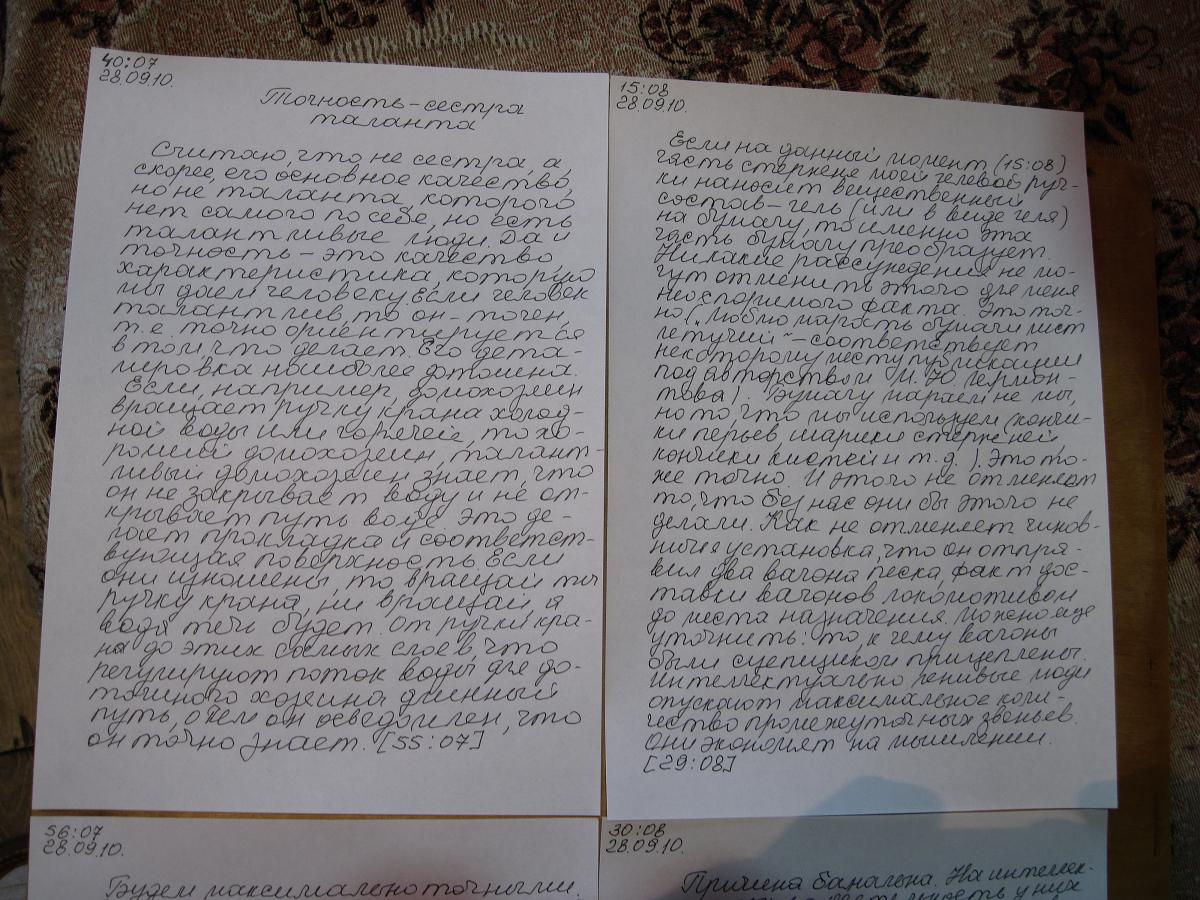 40:07
28.09.10.
Точность – сестра
таланта
Считаю, что не сестра, а,
скорее, его основное качество,
но не таланта, которого
нет самого по себе, но есть
талантливые люди. Да и
точность – это качество
характеристика, которую
мы даем человеку. Если человек
талантлив, то он – точен,
т.е. точно ориентируется
в том что делает. Его дета-
лировка наиболее дотошна.
Если, например, домохозяин
вращает ручку крана холод-
ной воды или горячей, то хо-
роший домохозяин, талант-
ливый домохозяин знает, что
он не закрывает воду и не от-
крывает путь воде. Это де-
лает прокладка и соответст-
вующая поверхность. Если
они изношены, то, вращай ты
ручку крана, ни вращай, а
вода течь будет. От ручки кра-
на до этих самых слоев, что
регулируют поток воды для до-
тошного хозяина длинный
путь, о чем он осведомлен, что
он точно знает. [55:07]
15:08
28.09.10.
Если на данный момент (15:08)
часть стержене моей гелевой руч-
ки наносит вещественный
состав – гель (или в виде геля)
на бумагу, то именно эта
часть бумагу преобразует.
Никакие рассуждения не мо-
гут отменить этого для меня
неоспоримого факта. Это точ-
но („Люблю марать бумаги лист
летучий" – соответствует
некоторому месту публикации
под авторством М. Ю. Лермон-
това). Бумагу мараем не мы,
но то, что мы используем (кончи-
ки перьев, шарики стержней,
кончики кистей и т.д.). Это то-
же точно. И этого не отменяет
то, что без нас они бы этого не
делали. Как не отменяет чинов-
ничья установка, что он отпра-
вил два вагона песка, факт дос-
тавки вагонов локомотивом
до места назначения. Можно еще
уточнить: то, к чему вагоны
были сцепщиком прицеплены.
Интеллектуально ленивые люди
опускают максимальное коли-
чество промежуточных звеньев.
Они экономят на мышлении.
[29:08]
56:07
28.09.10.
Будем максимально точными.
30:08
28.09.10.
Причина банальна. На интеллек-
у них